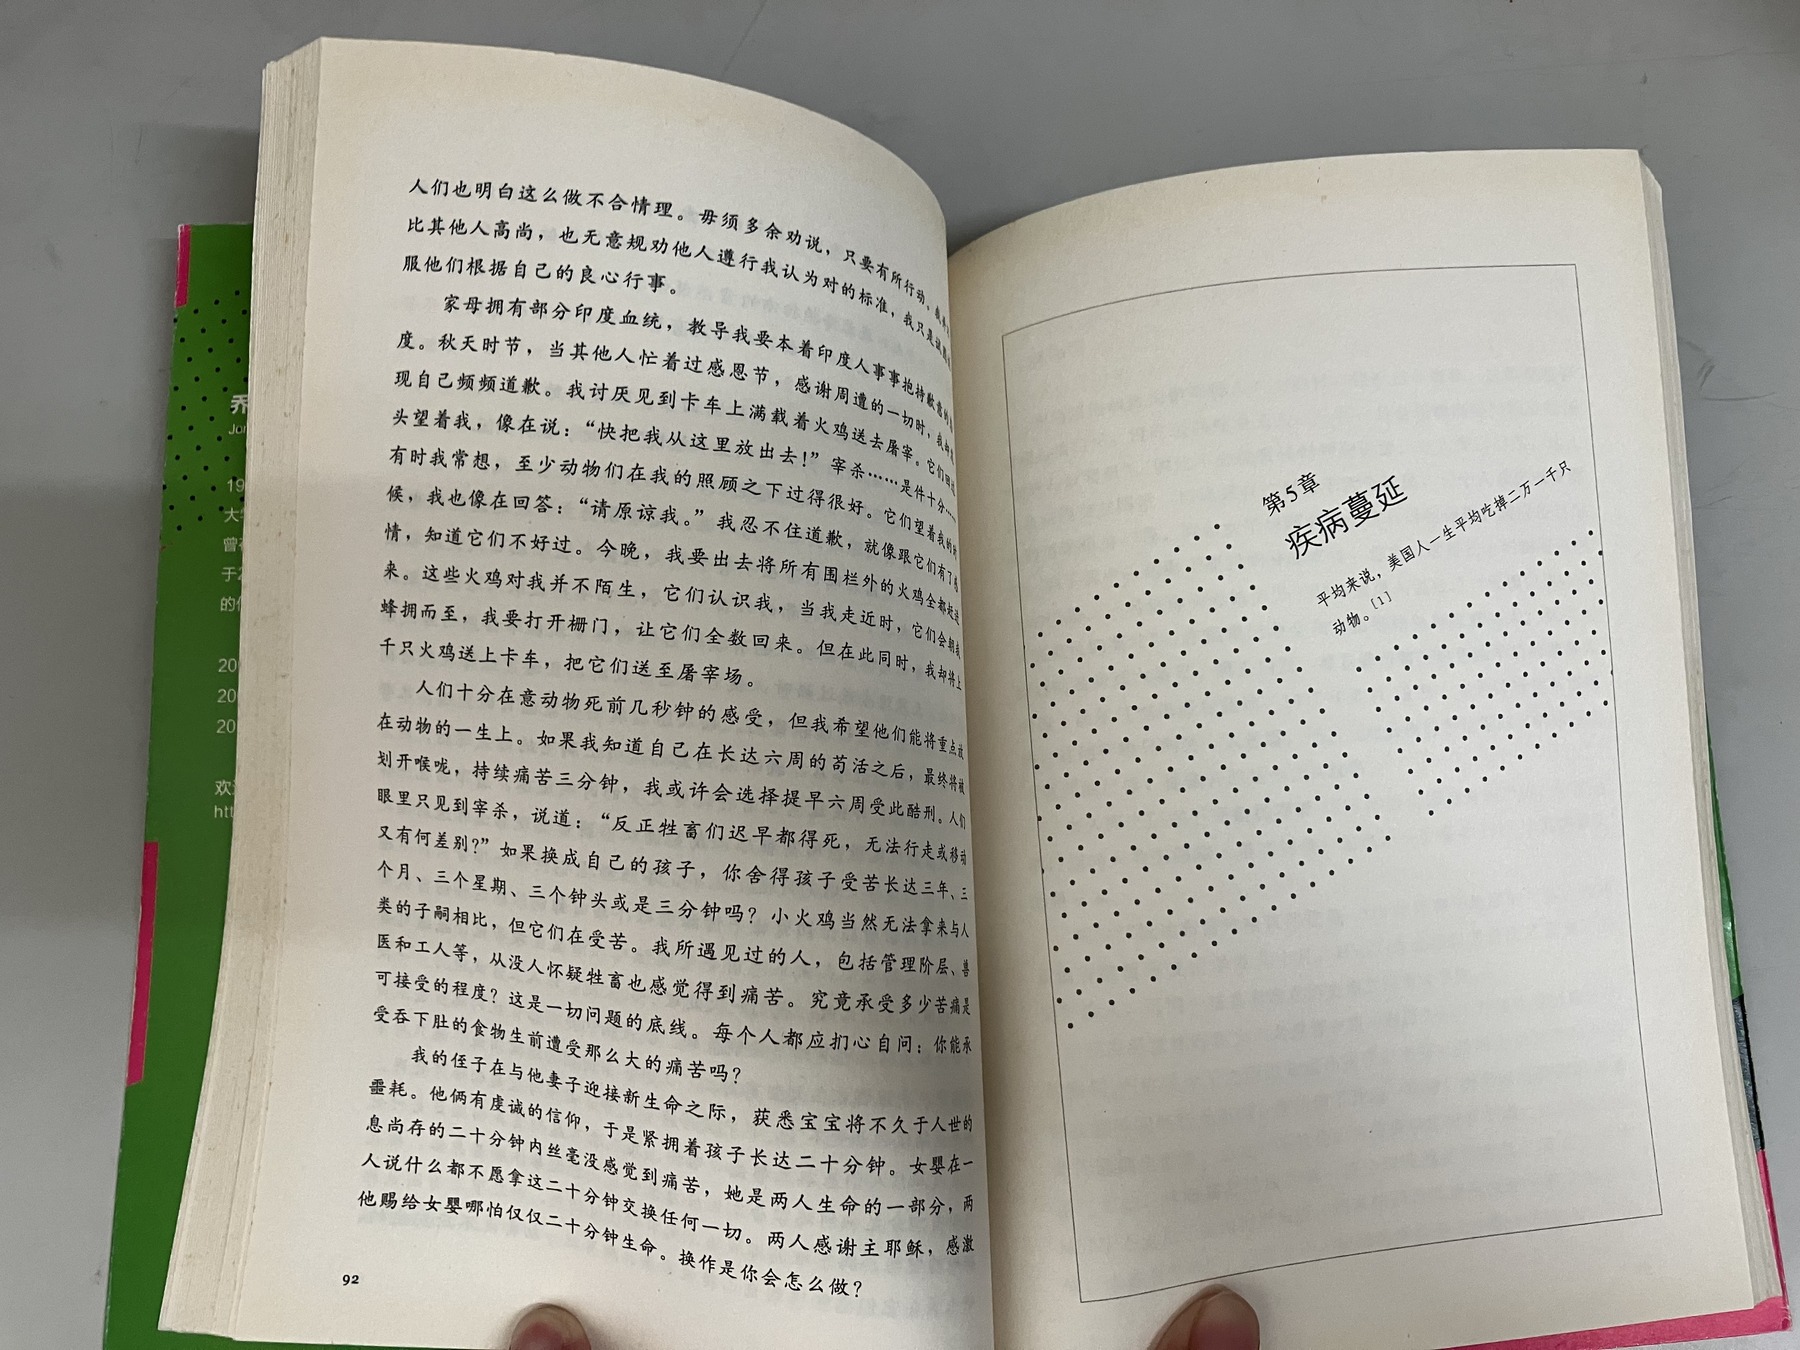 人们也明白这么做不合情理。毋须多余劝说，只要有所行动。我并
比其他人高尚，也无意规劝他人遵行我认为对的标准，我只是试
服他们根据自己的良心行事。
家母拥有部分印度血统，教导我要本着印度人事事抱持歉意的
度。秋天时节，当其他人忙着过感恩节，感谢周遭的一切时，我却
现自己频频道歉。我讨厌见到卡车上满载着火鸡送去屠宰。它们回过
头望着我，像在说：“快把我从这里放出去！”宰杀……是件十分……
有时我常想，至少动物们在我的照顾之下过得很好。它们望着我的时
候，我也像在回答：“请原谅我。”我忍不住道歉，就像跟它们有了感
情，知道它们不好过。今晚，我要出去将所有围栏外的火鸡全都赶进
来。这些火鸡对我并不陌生，它们认识我，当我走近时，它们会朝我
蜂拥而至，我要打开栅门，让它们全数回来。但在此同时，我却将上
千只火鸡送上卡车，把它们送至屠宰场。
人们十分在意动物死前几秒钟的感受，但我希望他们能将重点放
在动物的一生上。如果我知道自己在长达六周的苟活之后，最终将被
划开喉咙，持续痛苦三分钟，我或许会选择提早六周受此酷刑。人们
眼里只见到宰杀，说道：“反正牲畜们迟早都得死，无法行走或移动
又有何差别？”如果换成自己的孩子，你舍得孩子受苦长达三年、三
个月、三个星期、三个钟头或是三分钟吗？小火鸡当然无法拿来与人
类的子嗣相比，但它们在受苦。我所遇见过的人，包括管理阶层、兽
医和工人等，从没人怀疑牲畜也感觉得到痛苦。究竟承受多少苦痛是
可接受的程度？这是一切问题的底线。每个人都应扪心自问：你能承
受吞下肚的食物生前遭受那么大的痛苦吗？
我的侄子在与他妻子迎接新生命之际，获悉宝宝将不久于人世的
噩耗。他俩有虔诚的信仰，于是紧拥着孩子长达二十分钟。女婴在一
息尚存的二十分钟内丝毫没感觉到痛苦，她是两人生命的一部分，两
人说什么都不愿拿这二十分钟交换任何一切。两人感谢主耶稣，感激
他赐给女婴哪怕仅仅二十分钟生命。换作是你会怎么做？
92
第5章
疾病蔓延
平均来说，美国人一生平均吃掉二万一千只
动物。[1]
乔
Jon
19
大学
曾在
于2
的
20
20
20
欢
htt